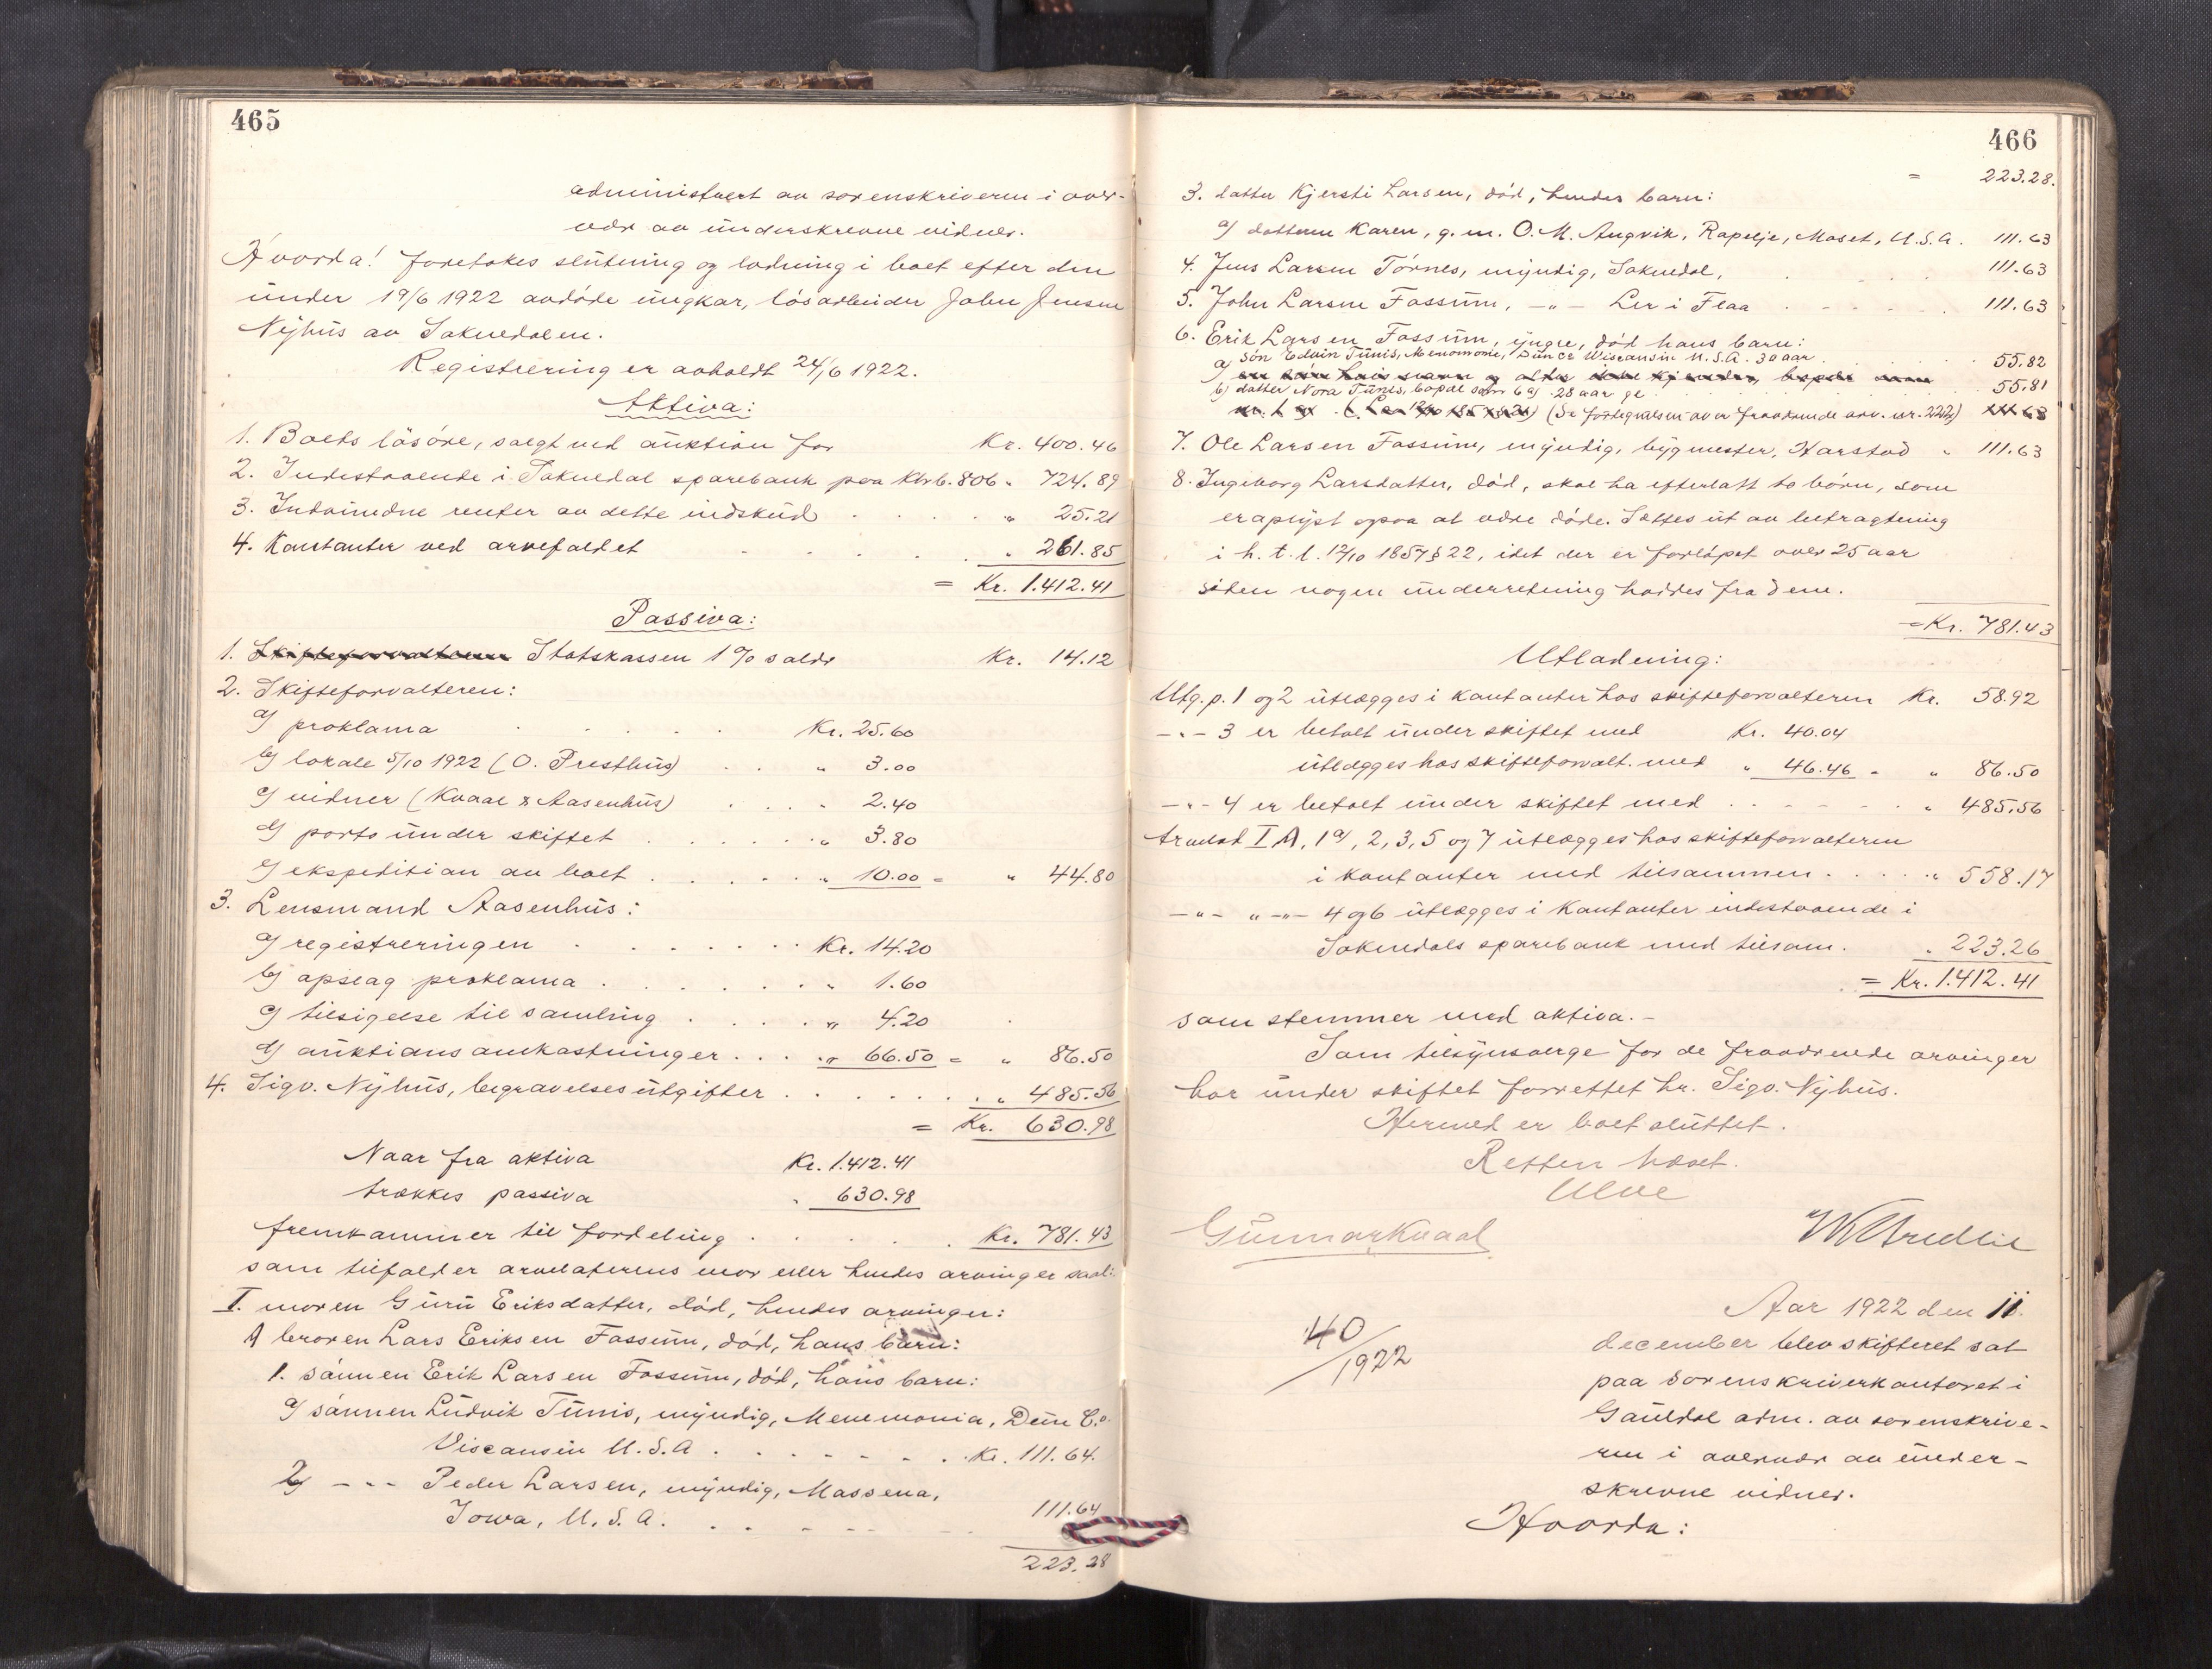 465
administrert av sorenskriveren i over-
vær av underskrevne vidner.
Hvorda! foretokes slutning og lodning i boet efter den
under 19/6 1922 avdøde ungkar, løsarbeider John Jensen
Nyhus av Soknedalen.
Registrering er avholdt 24/6 1922.
Aktiva:
1. Boets løsøre, solgt ved auktion for Kr. 400.46
2. Indestaaende i Soknedal sparebank paa Kbr 6.806 " 724.89
3. Indvundne renter av dette indskud . . . " 25.21
4. Kontanter ved arvefaldet . . . . " 261.85
= Kr. 1.412.41
Passiva:
1. Skifteforvalteren Statskassen 1% saldo Kr. 14.12
2. Skifteforvalteren:
a) proklama . . . . Kr. 25.60
b) lokale 5/10 1922 (O. Presthus) . . " 3.00
c) vidner (Kvaal & Aasenhus) . . . " 2.40
d) porto under skiftet . . . . . " 3.80
e) ekspedition av boet . . . . " 10.00 = " 44.80
3. Lensmand Aasenhus:
a) registreringen . . . . . Kr. 14.20
b) opslag proklama . . . . . " 1.60
c) tilsigelse til samling . . . . " 4.20
d) auktionsomkostninger . . . " 66.50 = " 86.50
4. Sigv. Nyhus, begravelsesutgifter . . . . . . " 485.56
= Kr. 630.98
Naar fra aktiva Kr. 1.412.41
trækkes passiva " 630.98
fremkommer til fordeling . . . . . Kr. 781.43
som tilfalder arvelaterens mor eller hendes arvinger saal:
I. moren Guru Eriksdatter, død, hendes arvinger:
A broren Lars Eriksen Fossum, død, hans barn:
1. sønnen Erik Larsen Fossum, død, hans barn:
a) sønnen Ludvik Tunis, myndig, Menemonia, Dun C.o.
Viscansin U.S.A . . . . . . Kr. 111.64.
2) -"- Peder Larsen, myndig, Massena,
Iowa, U.S.A. . . . . . . 111.64
223.28
466
= 223.28.
3. datter Kjersti Larsen, død, hendes barn:
a) datteren Karen, g.m. O.M. Angvik, Rapelje, Moset, U.S.A. 111.63
4. Jens Larsen Tørnes, myndig, Soknedal, . . 111.63
5. John Larsen Fossum, -"- Ler i Flaa . . . . . 111.63
6. Erik Larsen Fossum, yngre, død hans barn:
a) søn Edvin Tunis, Menomonie, Dun Co Wisconsin U.S.A. 30 aar . 55.82
b) datter Nora Tunis, bopæl som 6 a) 28 aar gl . . . 55.81
(Se fortegnelsen over fraværende arv. nr. 222) 111.63
7. Ole Larsen Fossum, myndig, bygmester, Harstad " 111.63
8. Ingeborg Larsdatter, død, skal ha efterlatt to børn, som
er oplyst ogsaa at være døde. Sættes ut av betragtning
i h. t. l. 12/10 1857 § 22, idet der er forløpet over 25 aar
siden nogen underretning haddes fra dem.
= Kr. 781.43
Utlodning:
Utg. p. 1 og 2 utlægges i kontanter hos skifteforvalteren Kr. 58.92
-"- 3 er betalt under skiftet med Kr. 40.04
utlægges hos skifteforvalt. med " 46.46 = " 86.50
-"- 4 er betalt under skiftet med . . . . . . " 485.56
Arvelod I A, 1 a), 2, 3, 5 og 7 utlægges hos skifteforvalteren
i kontanter med tilsammen . . . . " 558.17
-"- " -"- 4 og 6 utlægges i kontanter indestaaende i
Soknedals sparebank med tilsam. . " 223.26
= Kr. 1.412.41
som stemmer med aktiva. -
Som tilsynsverge for de fraværende arvinger
har under skiftet forrettet hr. Sigv. Nyhus.
Hermed er boet sluttet.
Retten hævet.
Ulve
Gunnar Kvaal
40/1922
Aar 1922 den 11.
december blev skifteret sat
paa sorenskriverkontoret i
Gauldal adm. av sorenskrive-
ren i overvær av under-
skrevne vidner.
Hvorda: